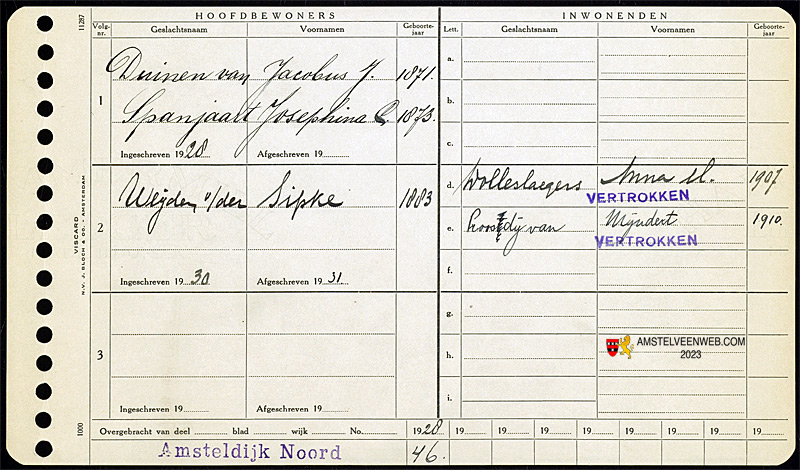 HOOFDBEWONERS
INWONENDEN
Volg-nr. Geslachtsnaam Voornamen Geboorte-jaar
Lett. Geslachtsnaam Voornamen Geboorte-jaar
1
Duinen van Jacobus J. 1871.
Spanjaart Josephina C. 1873.
Ingeschreven 1928 Afgeschreven 19
a.
b.
c.
2
Weijden v/der Sipke 1883
Ingeschreven 1930 Afgeschreven 1931.
d. Wolleslaegers Anna M. 1907
VERTROKKEN
e. van Mijndert 1910.
VERTROKKEN
f.
3
Ingeschreven 19 Afgeschreven 19
g.
h.
i.
AMSTELVEENWEB.COM
2023
Overgebracht van deel blad wijk No. 1928 19 19 19 19 19 19 19 19
Amsteldijk Noord 46.
11287
VISCARD
N.V. J. BLOCH & CO. / AMSTERDAM
1000